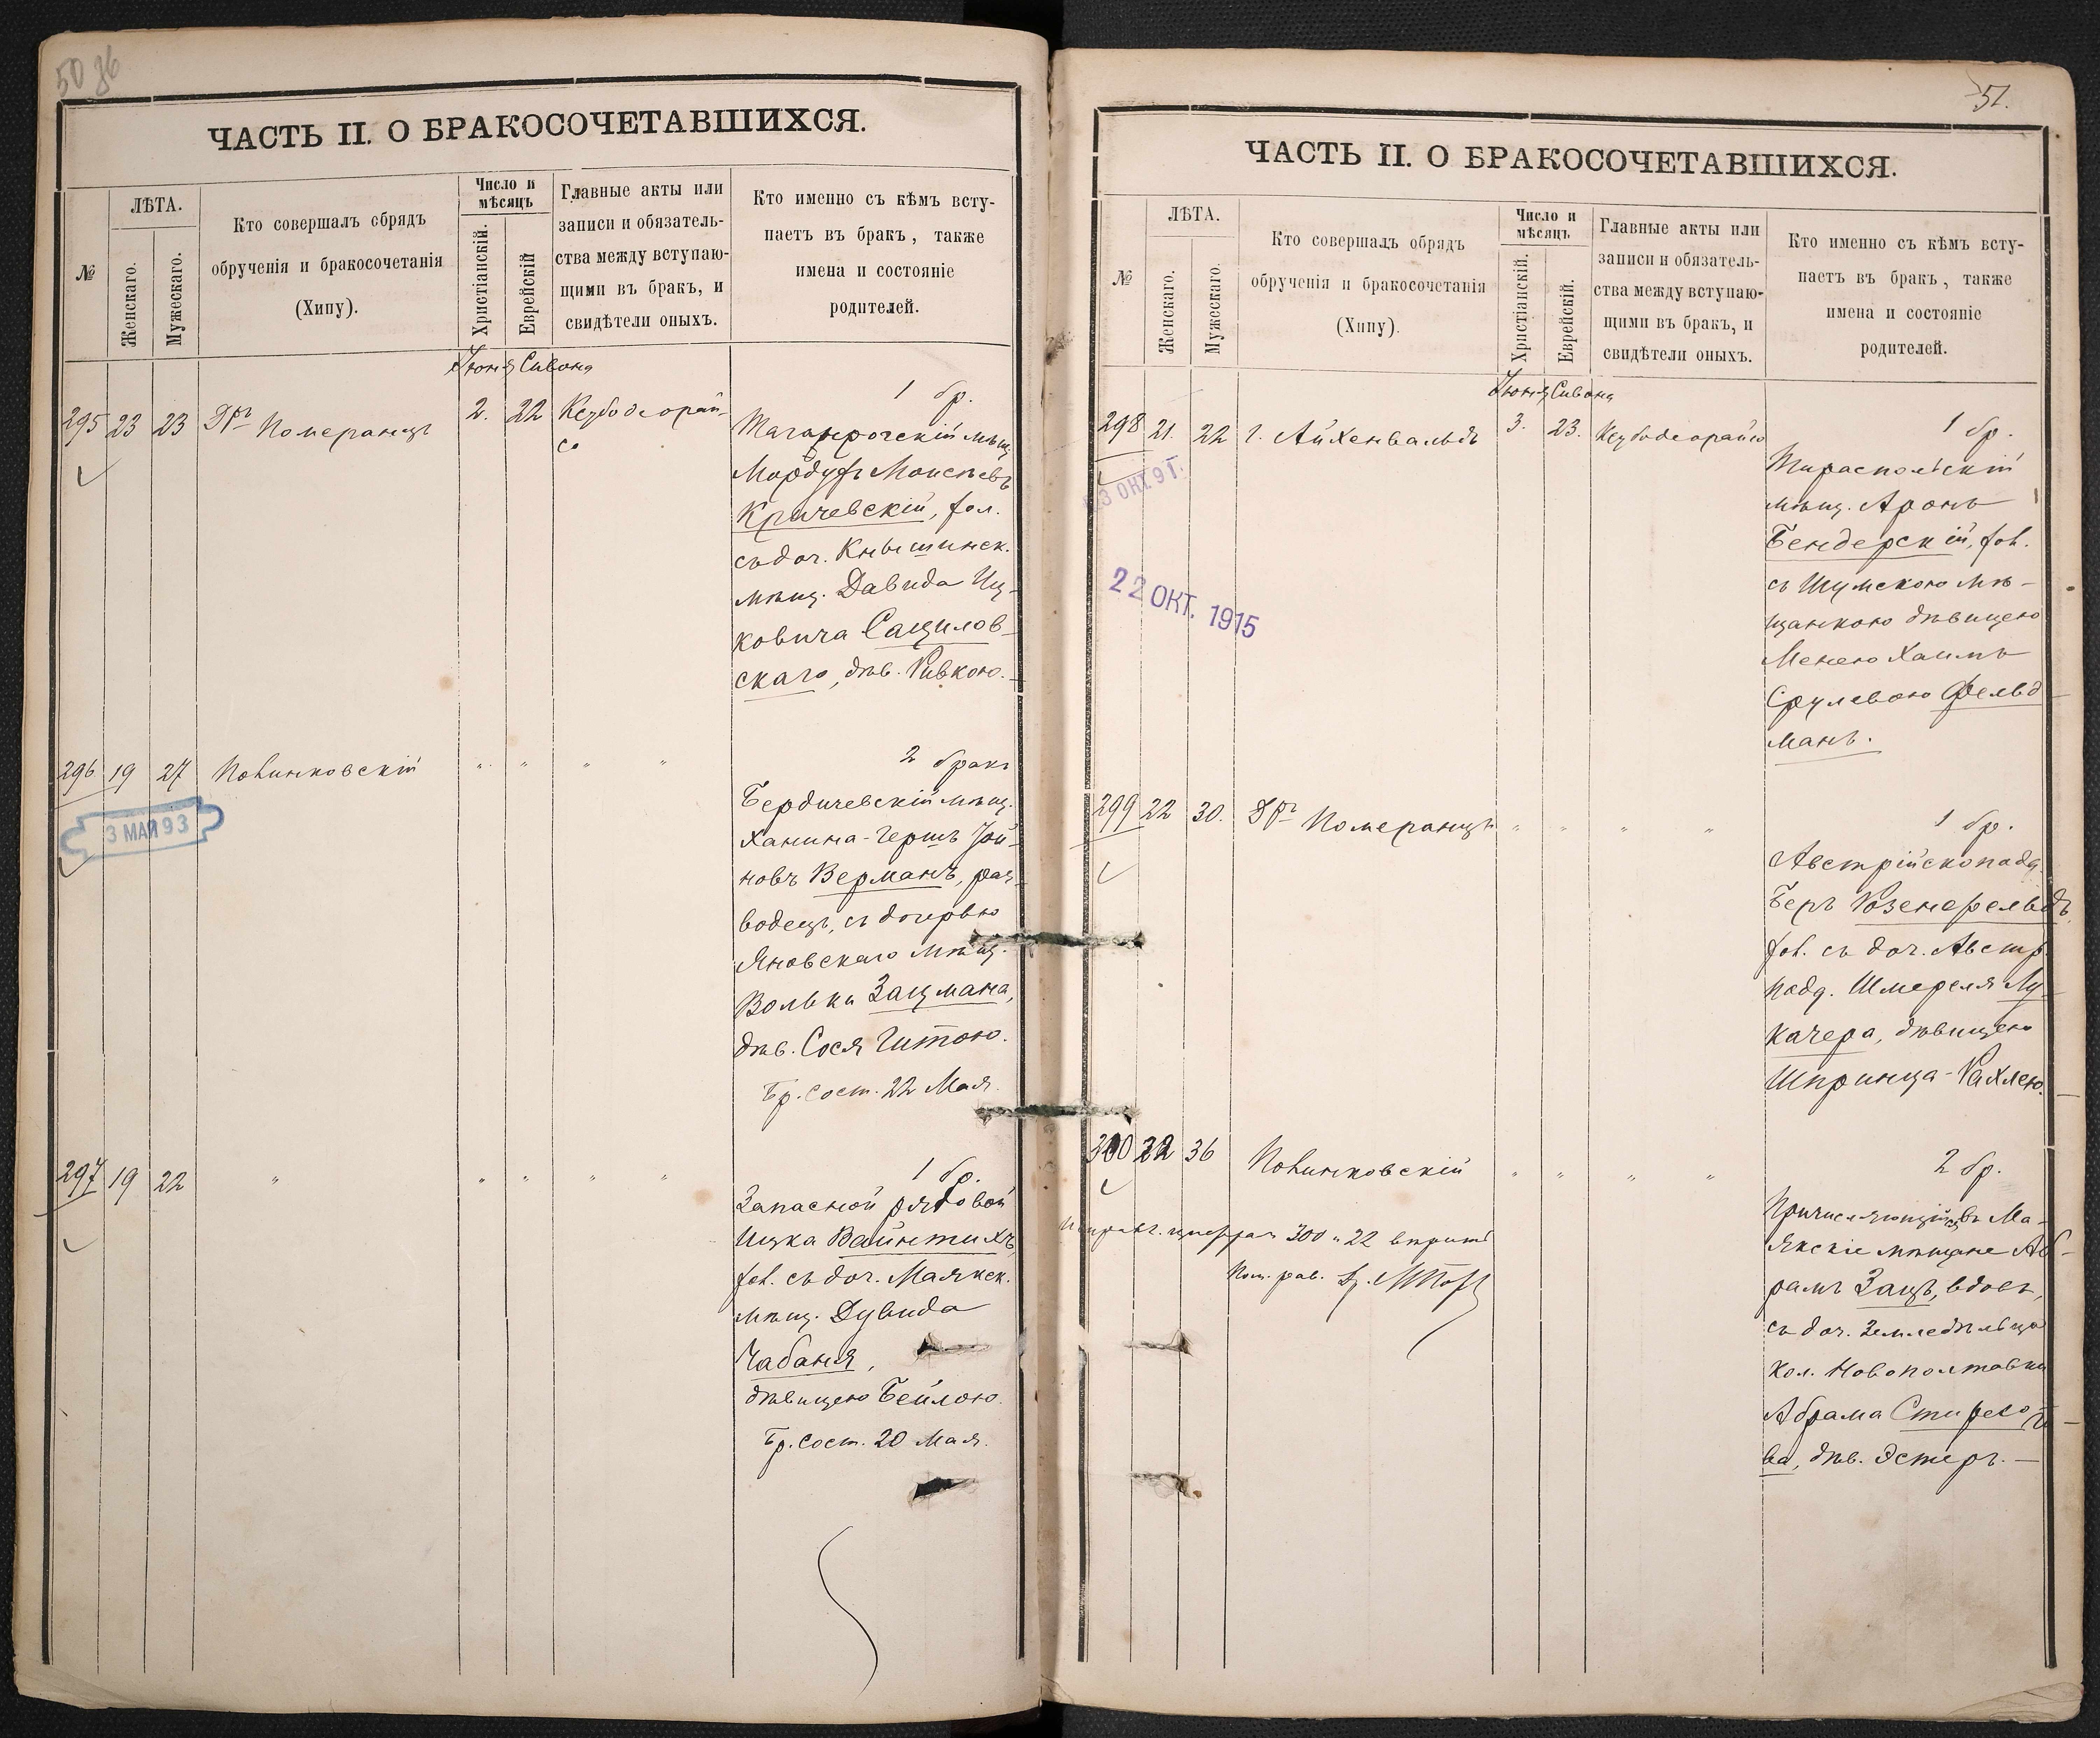 50 36
ЧАСТЬ II. О БРАКОСОЧЕТАВШИХСЯ.
№
ЛѢТА.
Женскаго.
Мужескаго.
Кто совершалъ обрядъ
обрученія и бракосочетанія
(Хипу).
Число и
мѣсяцъ
Христіанскій.
Еврейскій
Главные акты или
записи и обязатель-
ства между вступаю-
щими въ бракъ, и
свидѣтели оныхъ.
Кто именно съ кѣмъ всту-
паетъ въ бракъ, также
имена и состояніе
родителей.
Іюня Сивона
295 23 23 Дръ Померанцъ 2. 22 Кезубодеорай-
со
1 бр.
Таганрогскій мѣщ.
Мордухъ Моисѣевъ
Кричевскій, хол.
съ доч. Кнышинск.
мѣщ. Давида Иц-
ковича Сацилов-
скаго, дѣв. Ривкою.
296 19 27 Полинковскій " " " "
3 МАЯ 93
2 бракъ
Бердичевскій мѣщ.
Ханина-Гершъ Іой-
новъ Верманъ, раз-
водецъ, съ дочерью
Яновскаго мѣщ.
Вольки Зацмана,
дѣв. Сося Гитою.
Бр. сост. 22 Мая.
297 19 22 " " " " "
1 бр.
Запасной рядовой
Ицка Вайнтихъ,
хол. съ доч. Маякск.
мѣщ. Дувида
Чабаня,
дѣвицею Бейлою.
Бр. сост. 20 Мая.
51.
ЧАСТЬ II. О БРАКОСОЧЕТАВШИХСЯ.
№
ЛѢТА.
Женскаго.
Мужескаго.
Кто совершалъ обрядъ
обрученія и бракосочетанія
(Хипу).
Число и
мѣсяцъ
Христіанскій.
Еврейскій.
Главные акты или
записи и обязатель-
ства между вступаю-
щими въ бракъ, и
свидѣтели оныхъ.
Кто именно съ кѣмъ всту-
паетъ въ бракъ, также
имена и состояніе
родителей.
Іюня Сивона
298 21. 22 г. Айхенвальдъ 3. 23. Кезубодеорайсо
3 ОКТ. 9 Г.
22 ОКТ. 1915
1 бр.
Тираспольскій
мѣщ. Аронъ
Бендерскій, хол.
съ Шумскою мѣ-
щанкою дѣвицею
Менею Хаимъ
Срулевою Фельд-
манъ.
299 22 30. Дръ Померанцъ " " " "
1 бр.
Австрійскоподд.
Беръ Розенфельдъ,
хол. съ доч. Австр.
подд. Шмереля Лу-
качера, дѣвицею
Шпринца-Рахлею.
300 22 36 Полинковскій " " " "
2 бр.
Причисляющійся въ Ма-
якскіе мѣщане Аб-
рамъ Зацъ, вдовъ,
съ доч. земледѣльца
кол. Новополтавки
Абрама
ва, дѣв. Эстеръ.
Исправл. цифрам 300 и 22 вѣрить
Пом. рав.